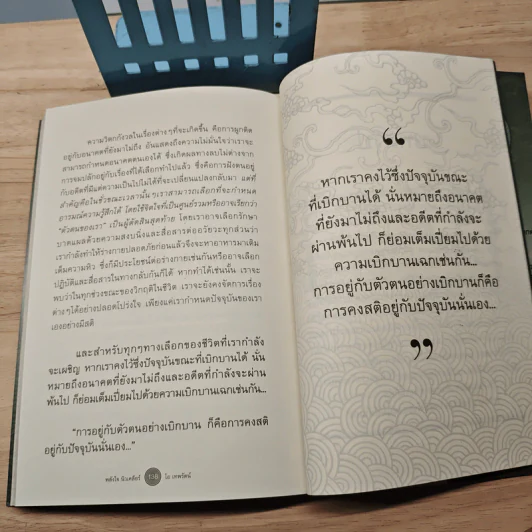 ความวิตกกังวลในเรื่องต่างๆที่จะเกิดขึ้น คือการผูกติด
อยู่กับอนาคตที่ยังมาไม่ถึง อันแสดงถึงความไม่มั่นใจว่าเราจะ
สามารถกำหนดอนาคตตนเองได้ ซึ่งเกิดผลทางลบไม่ต่างจาก
การจมปลักอยู่กับเรื่องที่ได้เลือกทำไปแล้ว ซึ่งคือการฝังตนอยู่
กับอดีตที่มีแต่ความเป็นไปไม่ได้ที่จะเปลี่ยนแปลงกลับมา แต่ที่
สำคัญคือในชั่วขณะเวลานั้นๆเราสามารถเลือกที่จะกำหนด
อารมณ์ความรู้สึกได้ โดยใช้จิตใจที่เป็นศูนย์รวมหรืออาจเรียกว่า
"ตัวตนของเรา" เป็นผู้ตัดสินสุดท้าย โดยเราอาจเลือกรักษา
บาดแผลด้วยความสงบนิ่งและสื่อสารต่ออวัยวะทุกส่วนว่า
เรากำลังทำให้ร่างกายปลอดภัยก่อนแล้วจึงจะหาอาหารมาเติม
เต็มความหิว ซึ่งก็มีประโยชน์ต่อร่างกายเช่นกันหรืออาจเลือก
ปฏิบัติและสื่อสารในทางกลับกันก็ได้ หากทำได้เช่นนั้น เราจะ
พบว่าในทุกช่วงขณะของวิกฤติในชีวิต เราจะยังคงจัดการเรื่อง
ต่างๆได้อย่างปลอดโปร่งใจ เพียงแค่เรากำหนดปัจจุบันของเรา
เองอย่างมีสติ
และสำหรับทุกๆทางเลือกของชีวิตที่เรากำลัง
จะเผชิญ หากเราคงไว้ซึ่งปัจจุบันขณะที่เบิกบานได้ นั่น
หมายถึงอนาคตที่ยังมาไม่ถึงและอดีตที่กำลังจะผ่าน
พ้นไป ก็ย่อมเต็มเปี่ยมไปด้วยความเบิกบานเฉกเช่นกัน...
"การอยู่กับตัวตนอย่างเบิกบาน ก็คือการคงสติ
อยู่กับปัจจุบันนั่นเอง..."
“
หากเราคงไว้ซึ่งปัจจุบันขณะ
ที่เบิกบานได้ นั่นหมายถึงอนาคต
ที่ยังมาไม่ถึงและอดีตที่กำลังจะ
ผ่านพ้นไป ก็ย่อมเต็มเปี่ยมไปด้วย
ความเบิกบานเฉกเช่นกัน...
การอยู่กับตัวตนอย่างเบิกบานก็คือ
การคงสติอยู่กับปัจจุบันนั่นเอง...
”